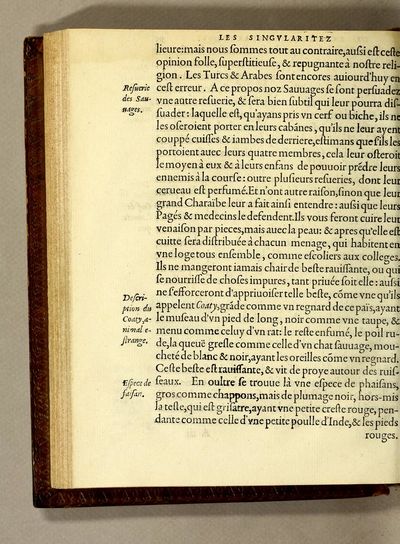 LES SINGVLARITEZ
lieure:mais nous sommes tout au contraire,aussi est ceste
opinion folle, superstitieuse, & repugnante à nostre reli-
gion. Les Turcs & Arabes sont encores auiourd'huy en
cest erreur. A ce propos noz Sauuages se sont persuadez
vne autre resuerie, & sera bien subtil qui leur pourra dis-
suader: laquelle est, qu'ayans pris vn cerf ou biche, ils ne
les oseroient porter en leurs cabánes, qu'ils ne leur ayent
couppé cuisses & iambes de derriere, estimans que s'ils les
portoient auec leurs quatre membres, cela leur osteroit
le moyen à eux & à leurs enfans de pouuoir prédre leurs
ennemis à la course: outre plusieurs resueries, dont leur
cerueau est perfumé. Et n'ont autre raison, sinon que leur
grand Charaïbe leur a fait ainsi entendre: aussi que leurs
Pagés & medecins le defendent. Ils vous feront cuire leur
venaison par pieces, mais auec la peau: & apres qu'elle est
cuitte sera distribuée à chacun menage, qui habitent en
vne loge tous ensemble, comme escoliers aux colleges.
Ils ne mangeront iamais chair de beste rauissante, ou qui
se nourrisse de choses impures, tant priuée soit elle: aussi
ne s'efforceront d'appriuoiser telle beste, cõme vne qu'ils
appelent Coaty, gráde comme vn regnard de ce païs, ayant
le museau d'vn pied de long, noir comme vne taupe, &
menu comme celuy d'vn rat: le reste enfumé, le poil ru-
de, la queuë gresle comme celle d'vn chat sauuage, mou-
cheté de blanc & noir, ayant les oreilles cõme vn regnard.
Ceste beste est rauissante, & vit de proye autour des ruis-
seaux. En oultre se trouue là vne espece de phaisans,
gros comme chappons, mais de plumage noir, hors-mis
la teste, qui est grisatre, ayant vne petite creste rouge, pen-
dante comme celle d'vne petite poulle d'Inde, & les pieds
rouges.
Resuerie
des Sau-
uages.
Descri-
ption du
Coaty, a-
nimal e-
strange.
Espece de
faisan.